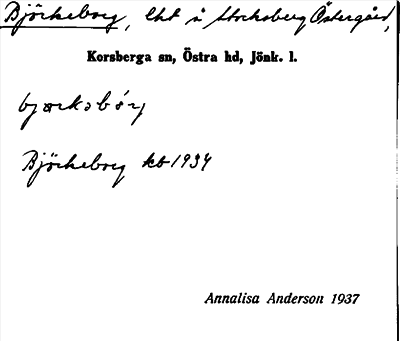 Björkeborg, lht å Stocksberg Östergård,
Korsberga sn, Östra hd, Jönk. l.
Björkeborg kb 1934
Annalisa Anderson 1937